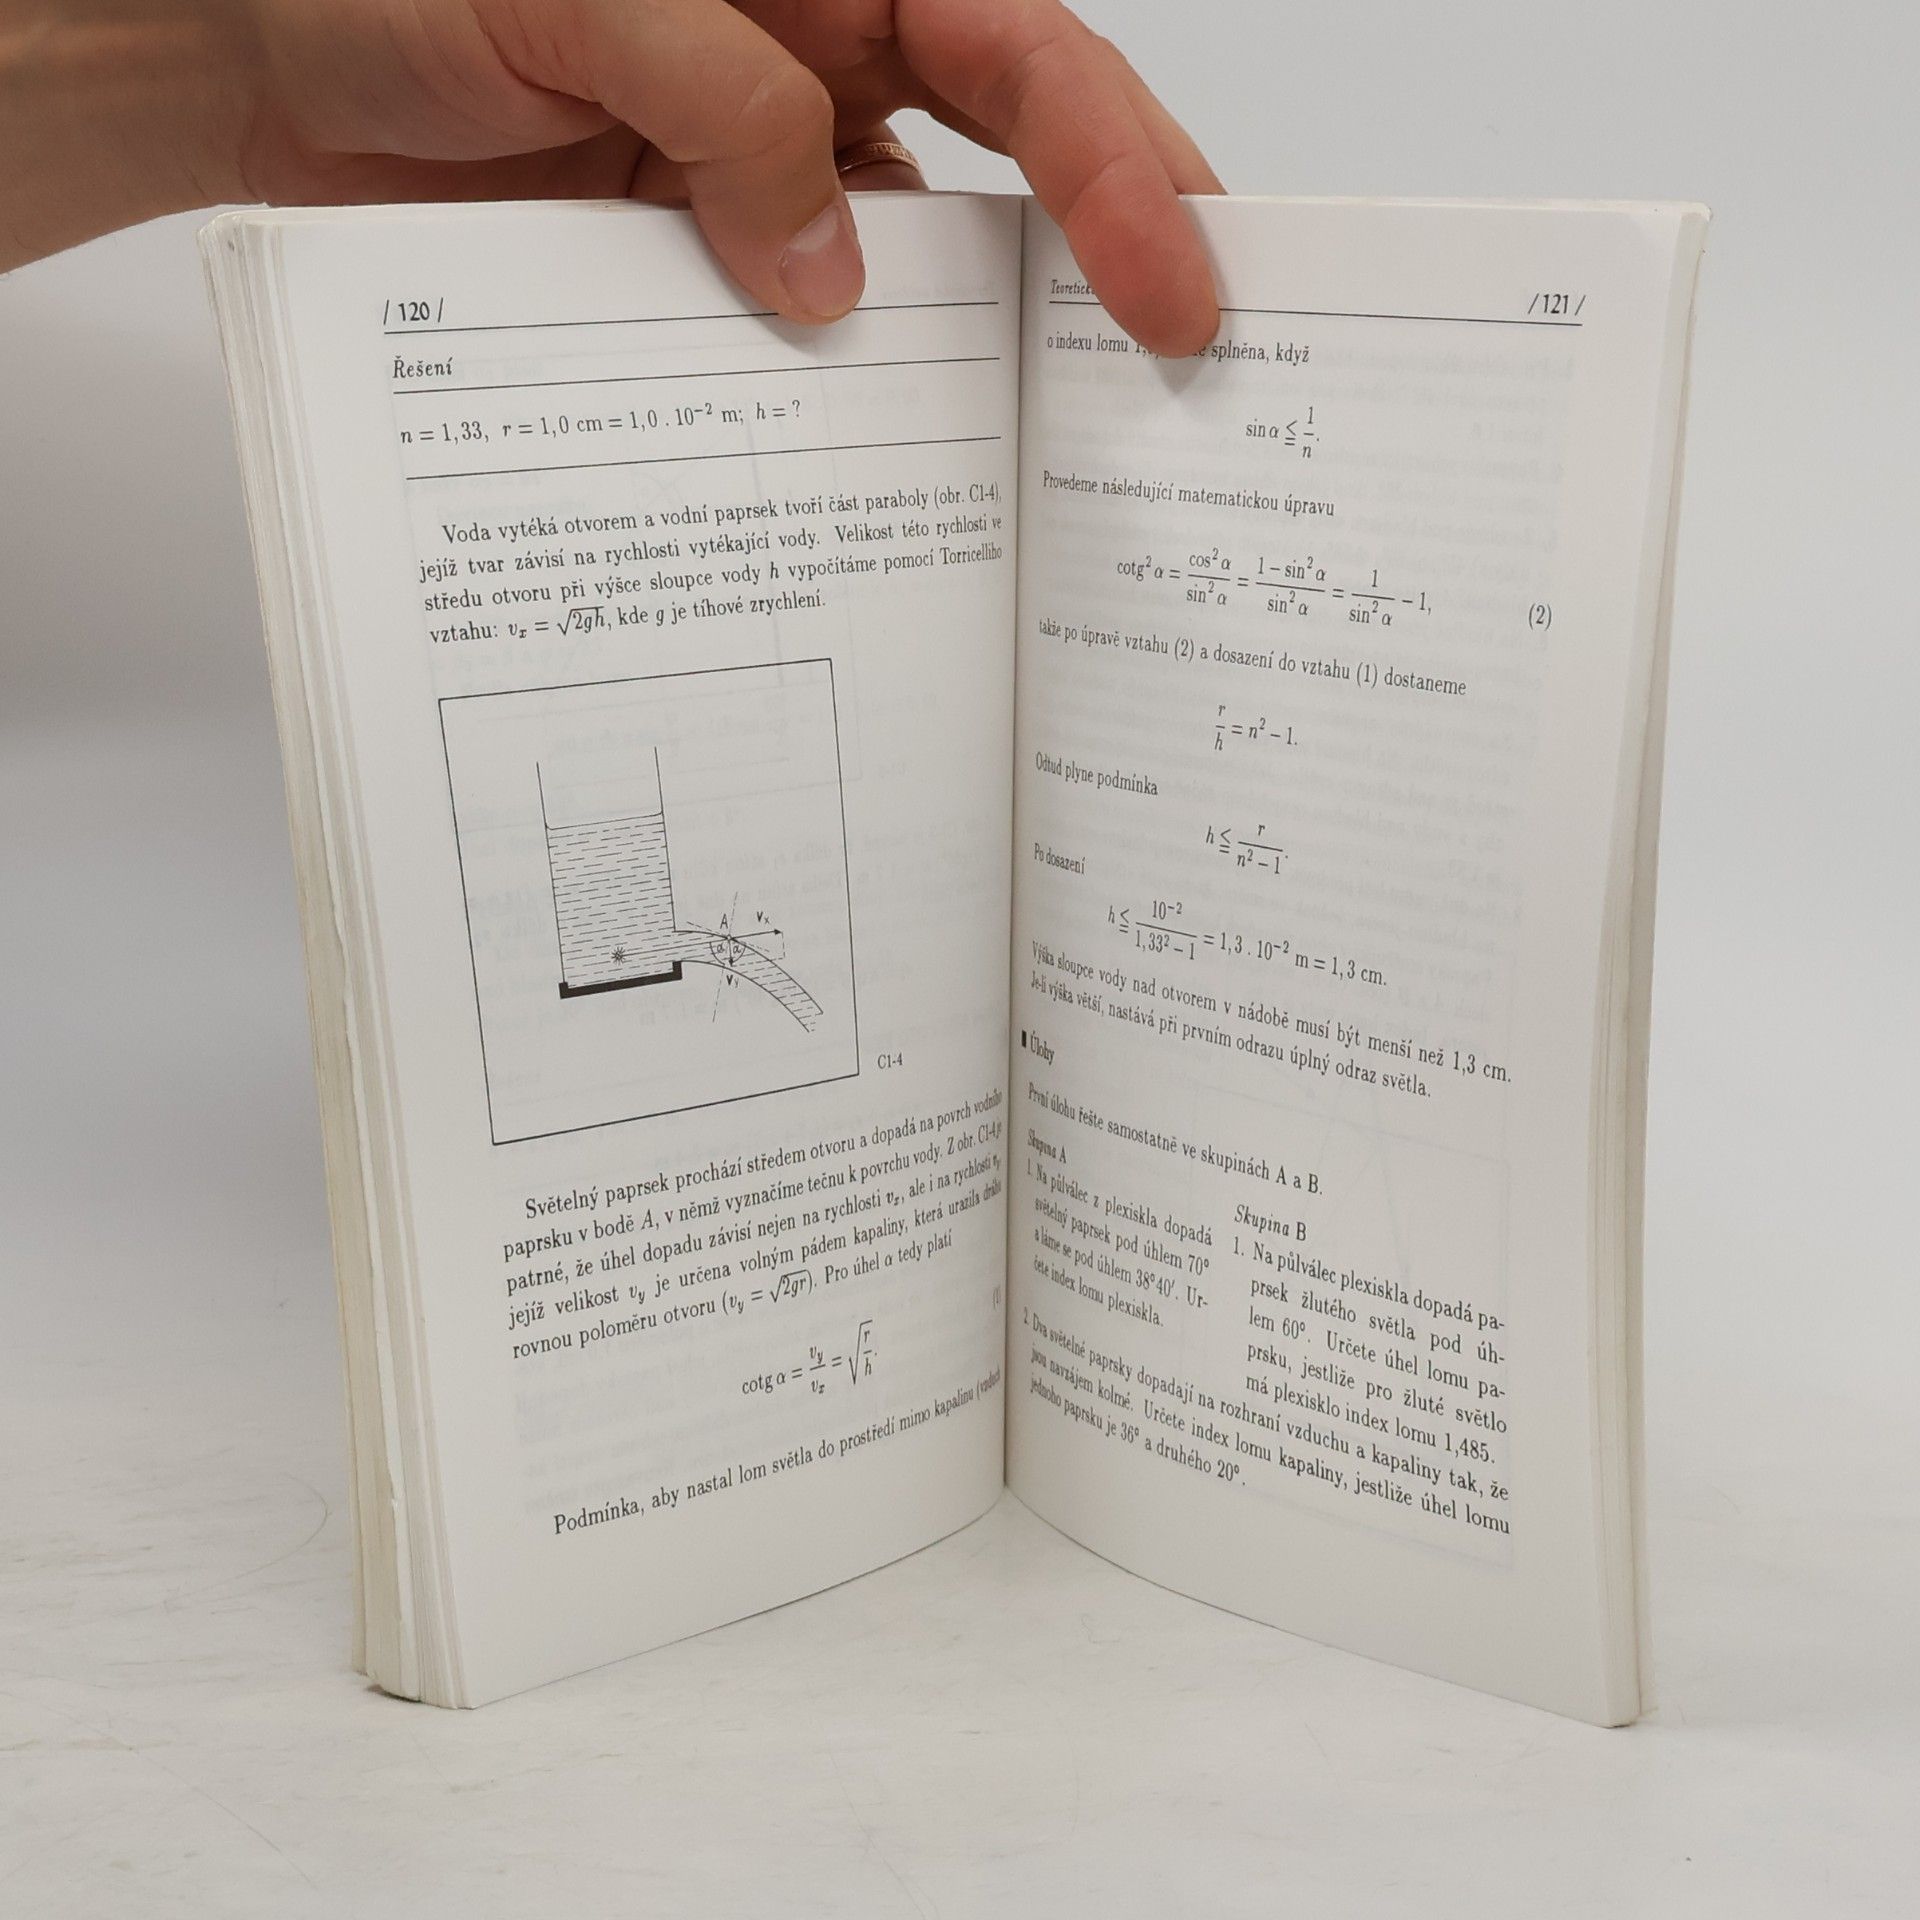 / 120 /
Řešení
n = 1,33, r = 1,0 cm = 1,0 . 10⁻² m; h = ?
Voda vytéká otvorem a vodní paprsek tvoří část paraboly (obr. C1-4),
jejíž tvar závisí na rychlosti vytékající vody. Velikost této rychlosti ve
středu otvoru při výšce sloupce vody h vypočítáme pomocí Torricelliho
vztahu: vₓ = √2gh, kde g je tíhové zrychlení.
A
vₓ
α α
v_y
C1-4
Světelný paprsek prochází středem otvoru a dopadá na povrch vodního
paprsku v bodě A, v němž vyznačíme tečnu k povrchu vody. Z obr. C1-4 je
patrné, že úhel dopadu závisí nejen na rychlosti vₓ, ale i na rychlosti v_y
jejíž velikost v_y je určena volným pádem kapaliny, která urazila dráhu
rovnou poloměru otvoru (v_y = √2gr). Pro úhel α tedy platí
cotg α = v_y/vₓ = √(r/h). (1)
Podmínka, aby nastal lom světla do prostředí mimo kapalinu (vzduch
/ 121 /
o indexu lomu splněna, když
sin α ≦ 1/n.
Provedeme následující matematickou úpravu
cotg² α = cos² α/sin² α = (1 − sin² α)/sin² α = 1/sin² α − 1, (2)
takže po úpravě vztahu (2) a dosazení do vztahu (1) dostaneme
r/h = n² − 1.
Odtud plyne podmínka
h ≦ r/(n² − 1).
Po dosazení
h ≦ 10⁻²/(1,33² − 1) = 1,3 . 10⁻² m = 1,3 cm.
Výška sloupce vody nad otvorem v nádobě musí být menší než 1,3 cm.
Je-li výška větší, nastává při prvním odrazu úplný odraz světla.
Úlohy
První úlohu řešte samostatně ve skupinách A a B.
Skupina A
1. Na půlválec z plexiskla dopadá
světelný paprsek pod úhlem 70°
a láme se pod úhlem 38°40′. Ur-
čete index lomu plexiskla.
Skupina B
1. Na půlválec plexiskla dopadá pa-
prsek žlutého světla pod úh-
lem 60°. Určete úhel lomu pa-
prsku, jestliže pro žluté světlo
má plexisklo index lomu 1,485.
2. Dva světelné paprsky dopadají na rozhraní vzduchu a kapaliny tak, že
jsou navzájem kolmé. Určete index lomu kapaliny, jestliže úhel lomu
jednoho paprsku je 36° a druhého 20°.